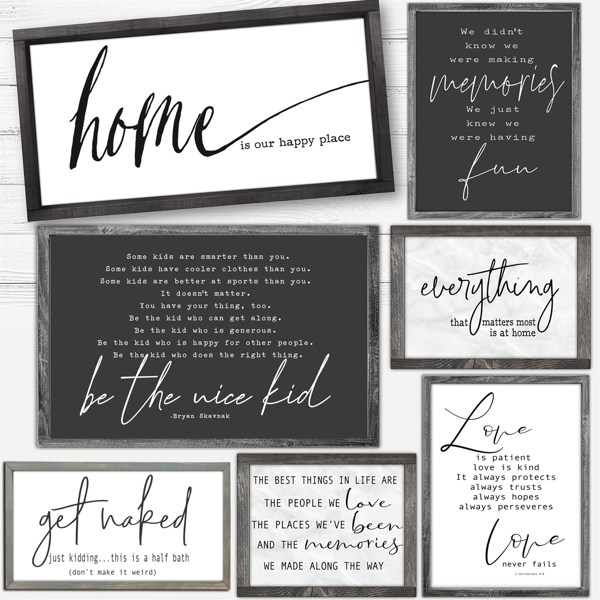 home
is our happy place
We didn't
know we
were making
memories
We just
knew we
were having
fun
Some kids are smarter than you.
Some kids have cooler clothes than you.
Some kids are better at sports than you.
It doesn't matter.
You have your thing, too.
Be the kid who can get along.
Be the kid who is generous.
Be the kid who is happy for other people.
Be the kid who does the right thing.
be the nice kid
-Bryan Skavnak
everything
that matters most
is at home
Love
is patient
love is kind
It always protects
always trusts
always hopes
always perseveres
Love
never fails
get naked
just kidding...this is a half bath
(don't make it weird)
THE BEST THINGS IN LIFE ARE
THE PEOPLE WE love
THE PLACES WE'VE been
AND THE memories
WE MADE ALONG THE WAY